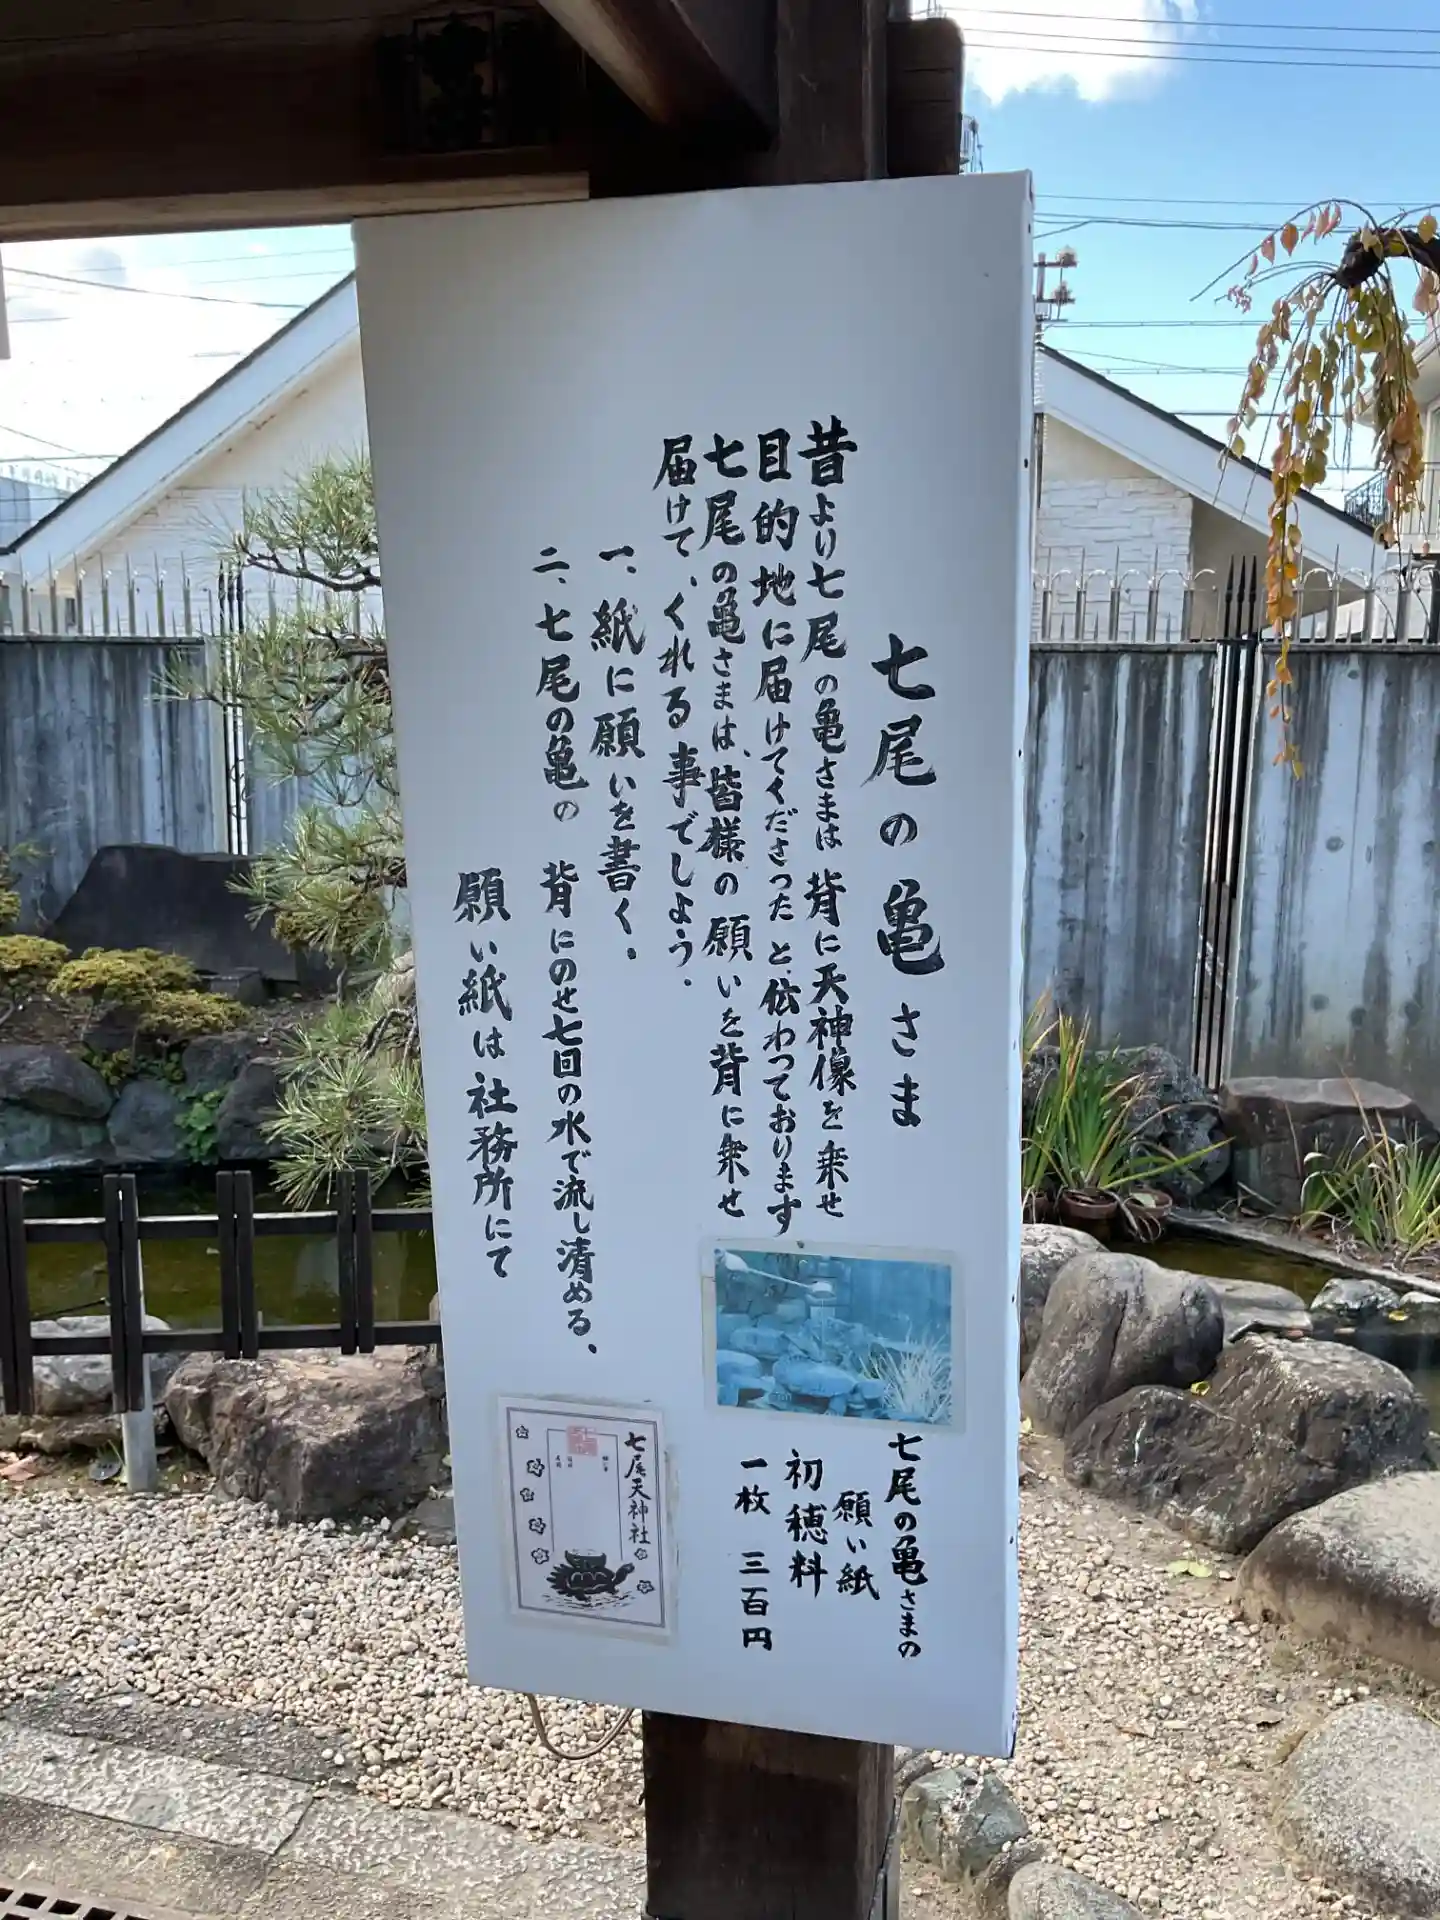 七尾の亀さま
昔より七尾の亀さまは背に天神像を乗せ
目的地に届けてくださったと伝わっております
七尾の亀さまは、皆様の願いを背に乗せ
届けて、くれる事でしょう.
一、紙に願いを書く.
二、七尾の亀の背にのせ七回の水で流し清める.
願い紙は社務所にて
七尾の亀さまの
願い紙
初穂料
一枚 三百円
七尾天神社